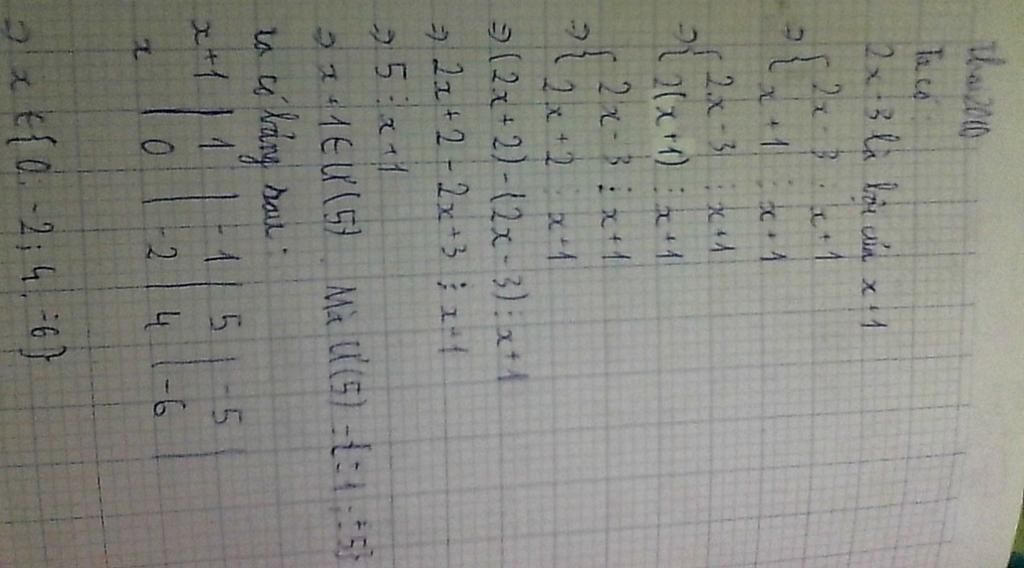 Ta có:
2x - 3 là bội của x+1
⇒ { 2x - 3 ⋮ x+1
x + 1 ⋮ x+1
⇒ { 2x - 3 ⋮ x+1
2(x+1) ⋮ x+1
⇒ { 2x - 3 ⋮ x+1
2x + 2 ⋮ x+1
⇒ (2x + 2) - (2x - 3) ⋮ x+1
⇒ 2x + 2 - 2x + 3 ⋮ x+1
⇒ 5 ⋮ x+1
⇒ x + 1 ∈ Ư(5) Mà Ư(5) = {±1; ±5}
Ta có bảng sau:
x+1 | 1 | -1 | 5 | -5 |
x | 0 | -2 | 4 | -6 |
⇒ x ∈ {0; -2; 4; -6}